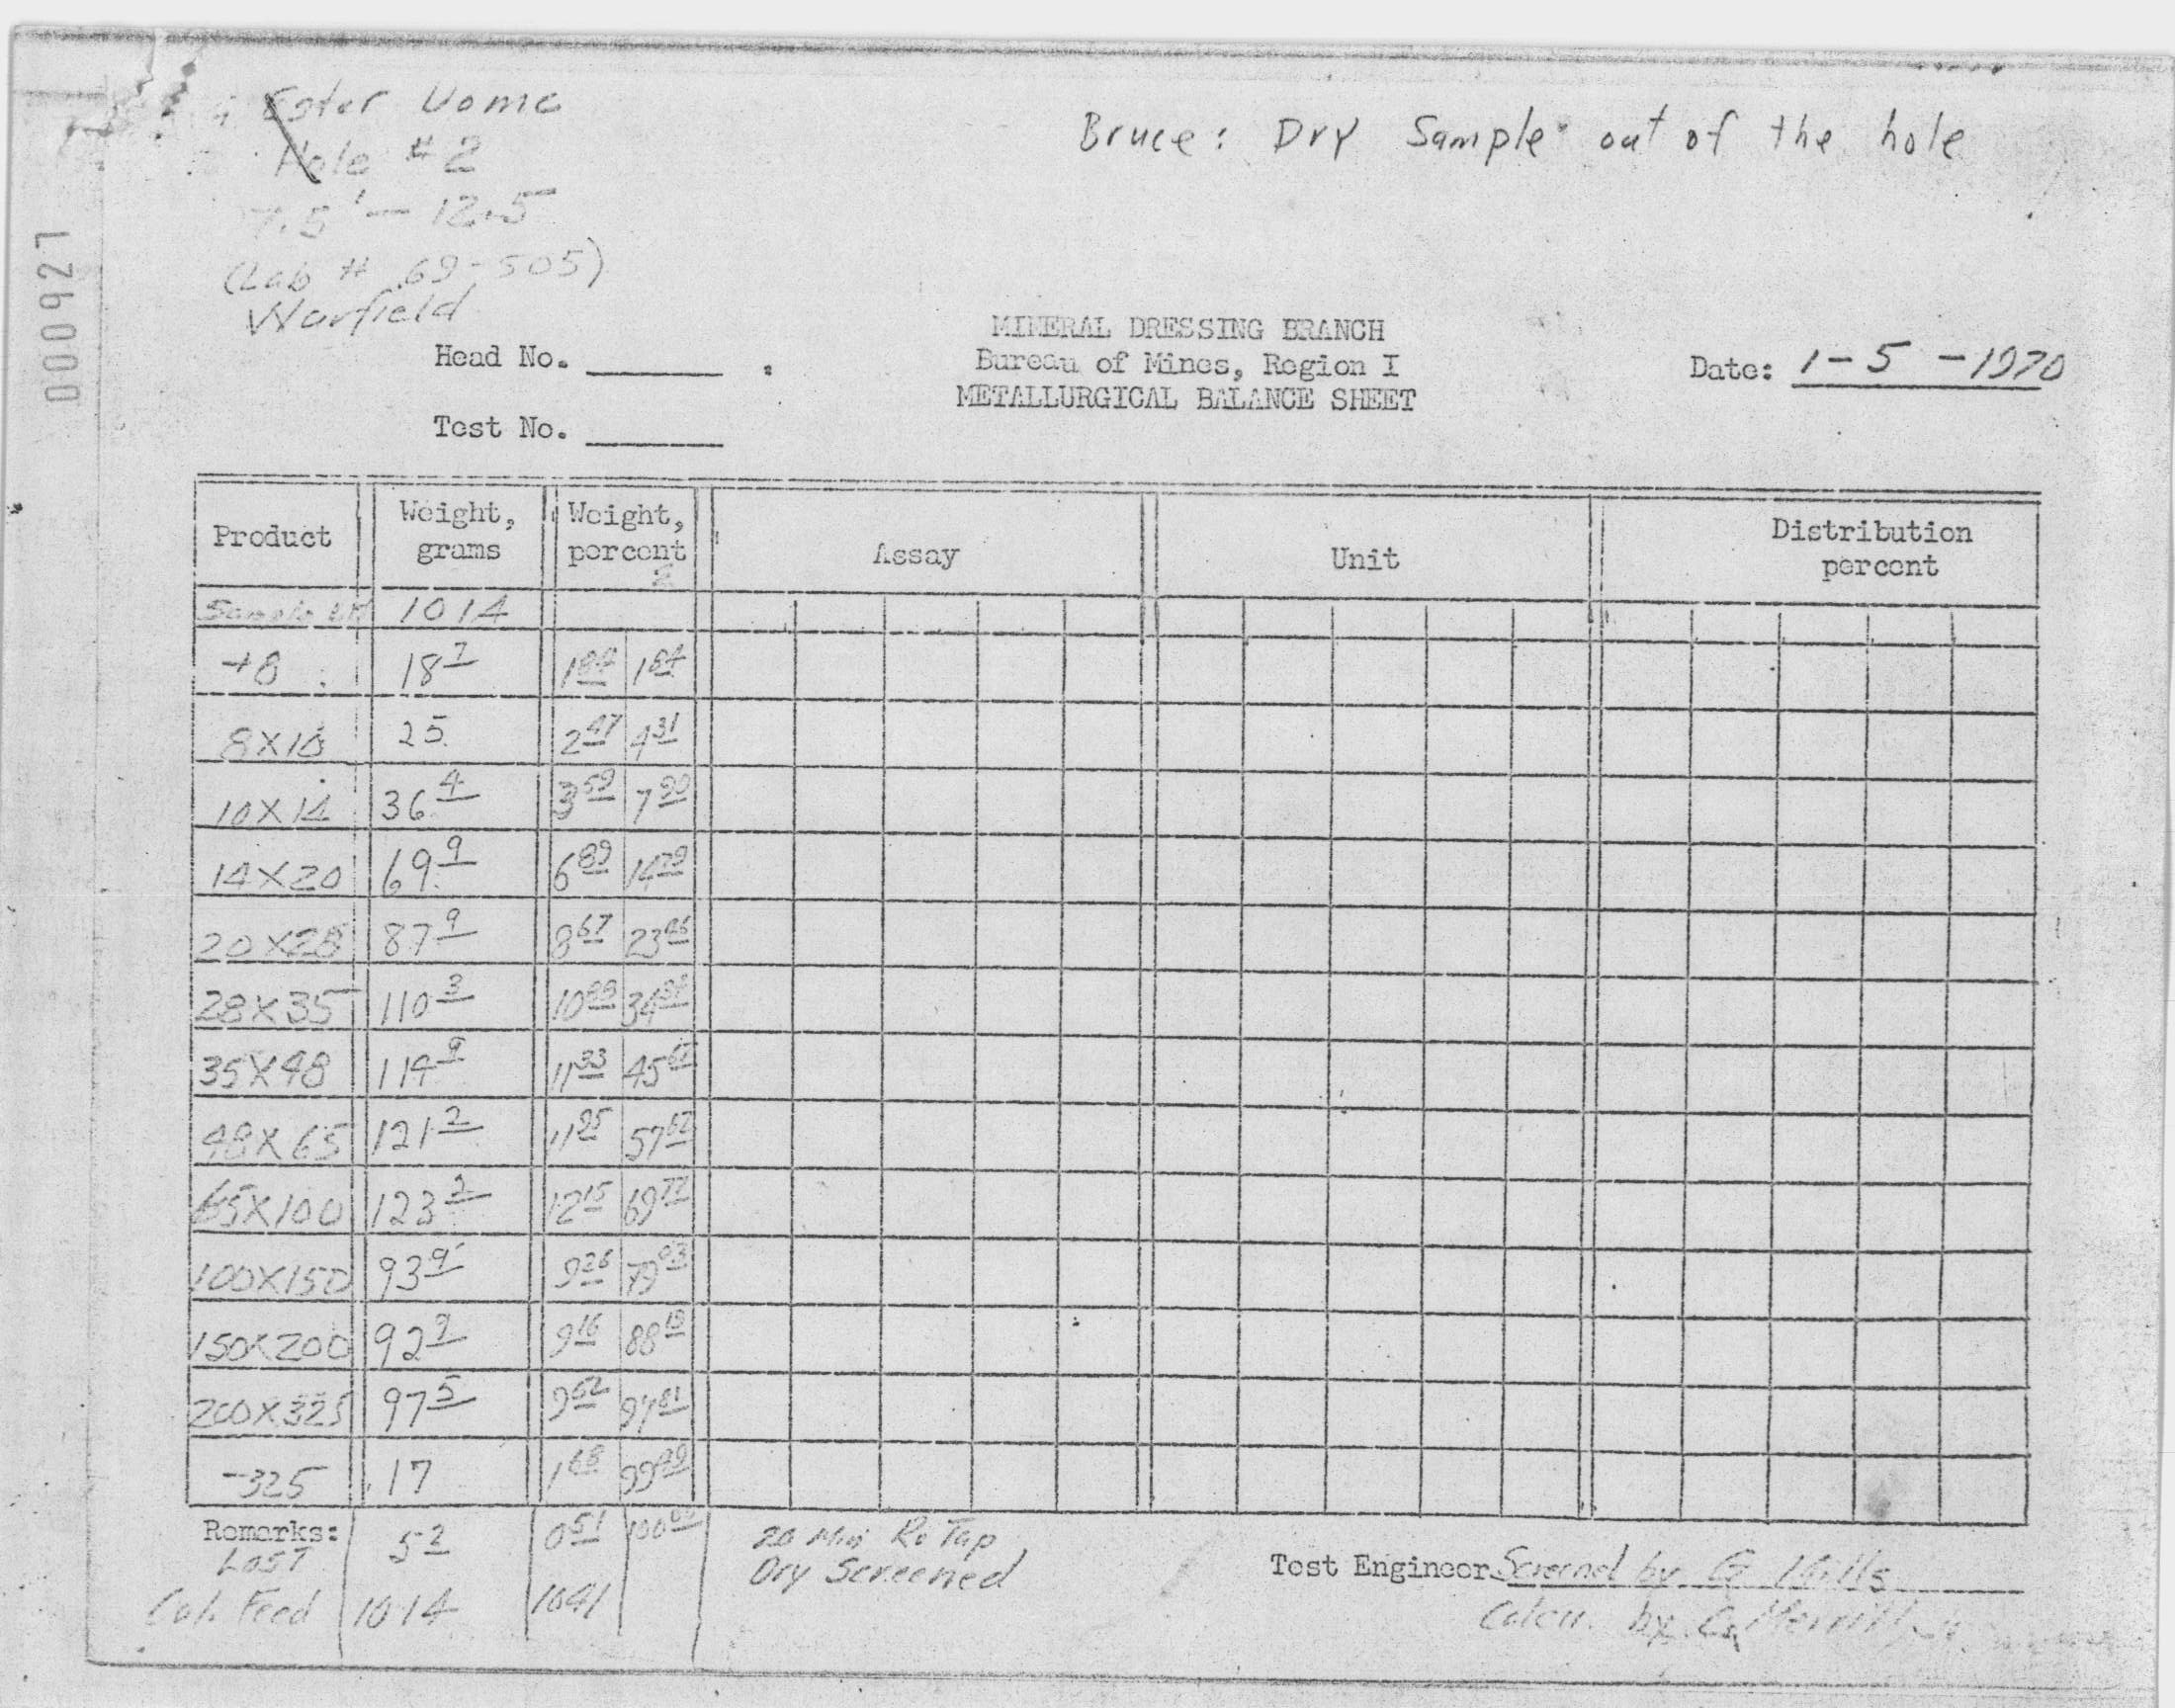 Ester Dome
Hole # 2
7.5' - 12.5
(Lab # 69-505)
Warfield
Bruce: Dry Sample out of the hole
000927
MINERAL DRESSING BRANCH
Bureau of Mines, Region I
METALLURGICAL BALANCE SHEET
Head No.
Test No.
Date: 1-5-1970
Product Weight, grams Weight, percent Assay Unit Distribution percent
Sample wt 1014
+8 18 7 1 84 1 84
8X10 25 2 47 4 31
10X14 36 4 3 59 7 90
14X20 69 9 6 89 14 79
20X28 87 9 8 67 23 46
28X35 110 3 10 88 34 34
35X48 114 9 11 33 45 67
48X65 121 2 11 95 57 62
65X100 123 2 12 15 69 77
100X150 93 9 9 26 79 03
150X200 92 9 9 16 88 19
200X325 97 5 9 62 97 81
-325 17 1 68 99 49
Remarks:
Lost 5 2 0 51 100 00
Cal. Feed 1014 1041
20 Min Ro Tap
Dry Screened
Test Engineer Screened by G Mills
Calcu. by C. Merrill